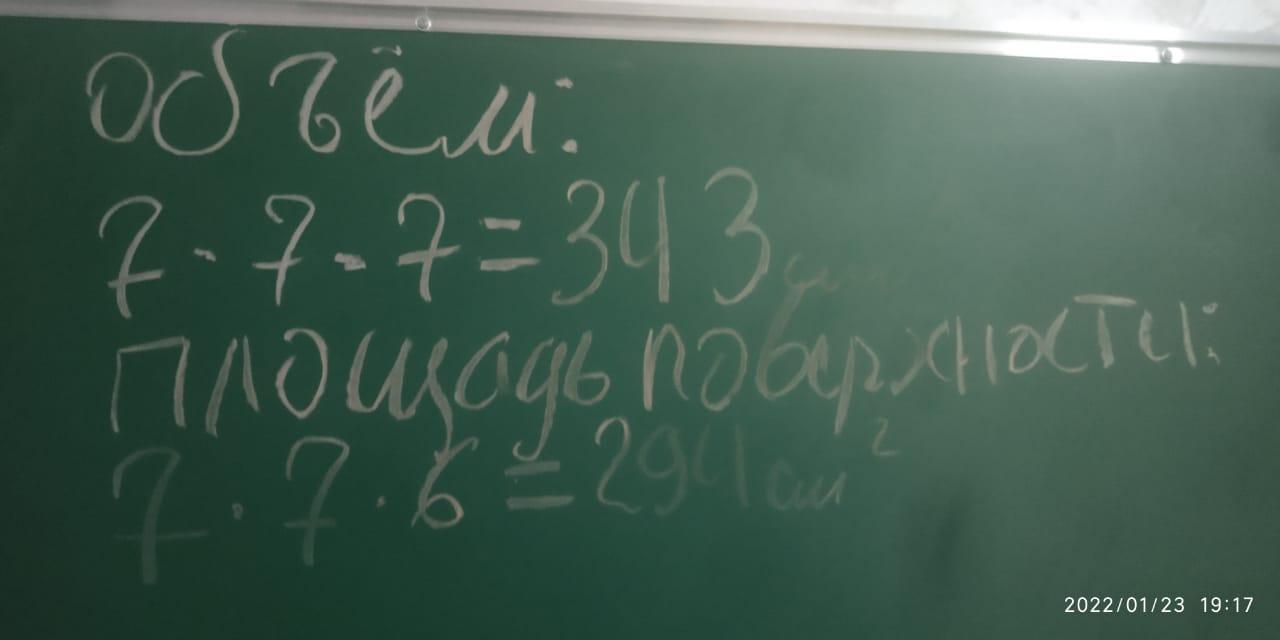 Объём:
7 · 7 · 7 = 343 см
Площадь поверхности:
7 · 7 · 6 = 294 см²
2022/01/23 19:17